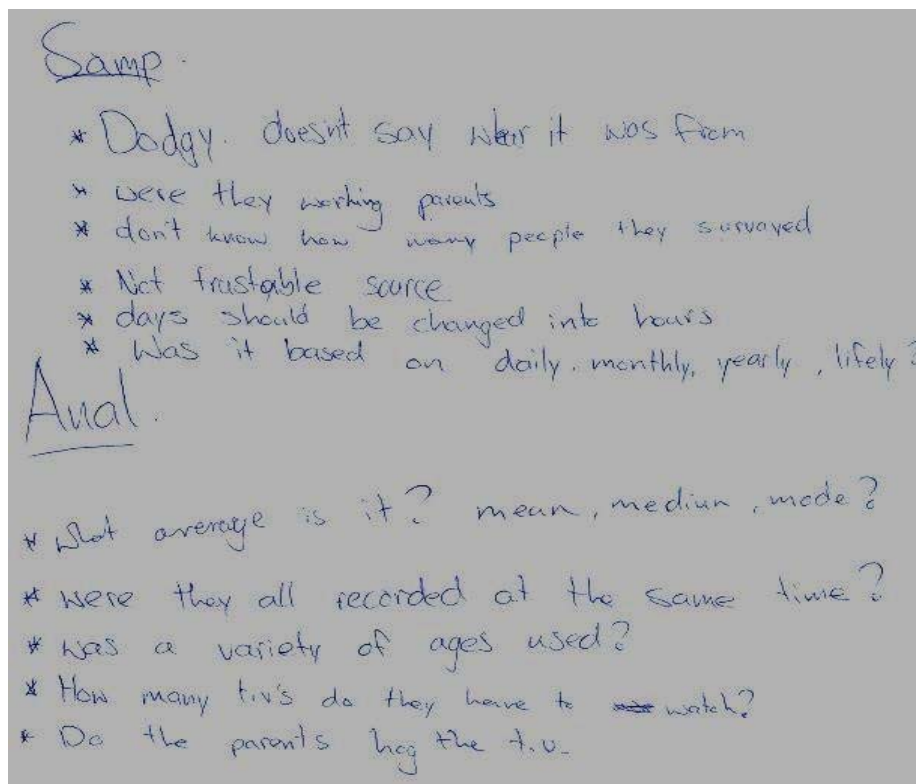 Samp.
* Dodgy. doesn't say wher it was from
* were they working parents
* don't know how many people they survayed
* Not trustable source
* days should be changed into hours
* Was it based on daily, monthly, yearly, lifely?
Anal.
* What average is it? mean, mediun, mode?
* were they all recorded at the same time?
* was a variety of ages used?
* How many t.v's do they have to watch?
* Do the parents hog the t.v.